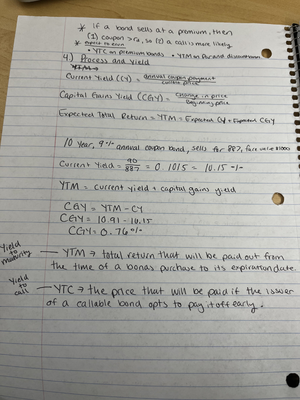 * if a bond sells at a premium, then
(1) coupon > rd, so (2) a call is more likely
* expect to earn
• YTC on premium bonds • YTM on Par and discount bonds
4) Process and Yield
YTM →
Current Yield (CY) = annual coupon payment / current price
Capital Gains Yield (CGY) = change in price / beginning price
Expected Total Return = YTM = Expected CY + Expected CGY
10 year, 9% annual coupon bond, sells for 887, face value $1000
Current Yield = 90 / 887 = 0.1015 = 10.15%
YTM = current yield + capital gains yield
CGY = YTM - CY
CGY = 10.91 - 10.15
CGY = 0.76%
Yield to maturity — YTM → total return that will be paid out from
the time of a bonds purchase to its expiration date.
Yield to call — YTC → the price that will be paid if the issuer
of a callable bond opts to pay it off early.